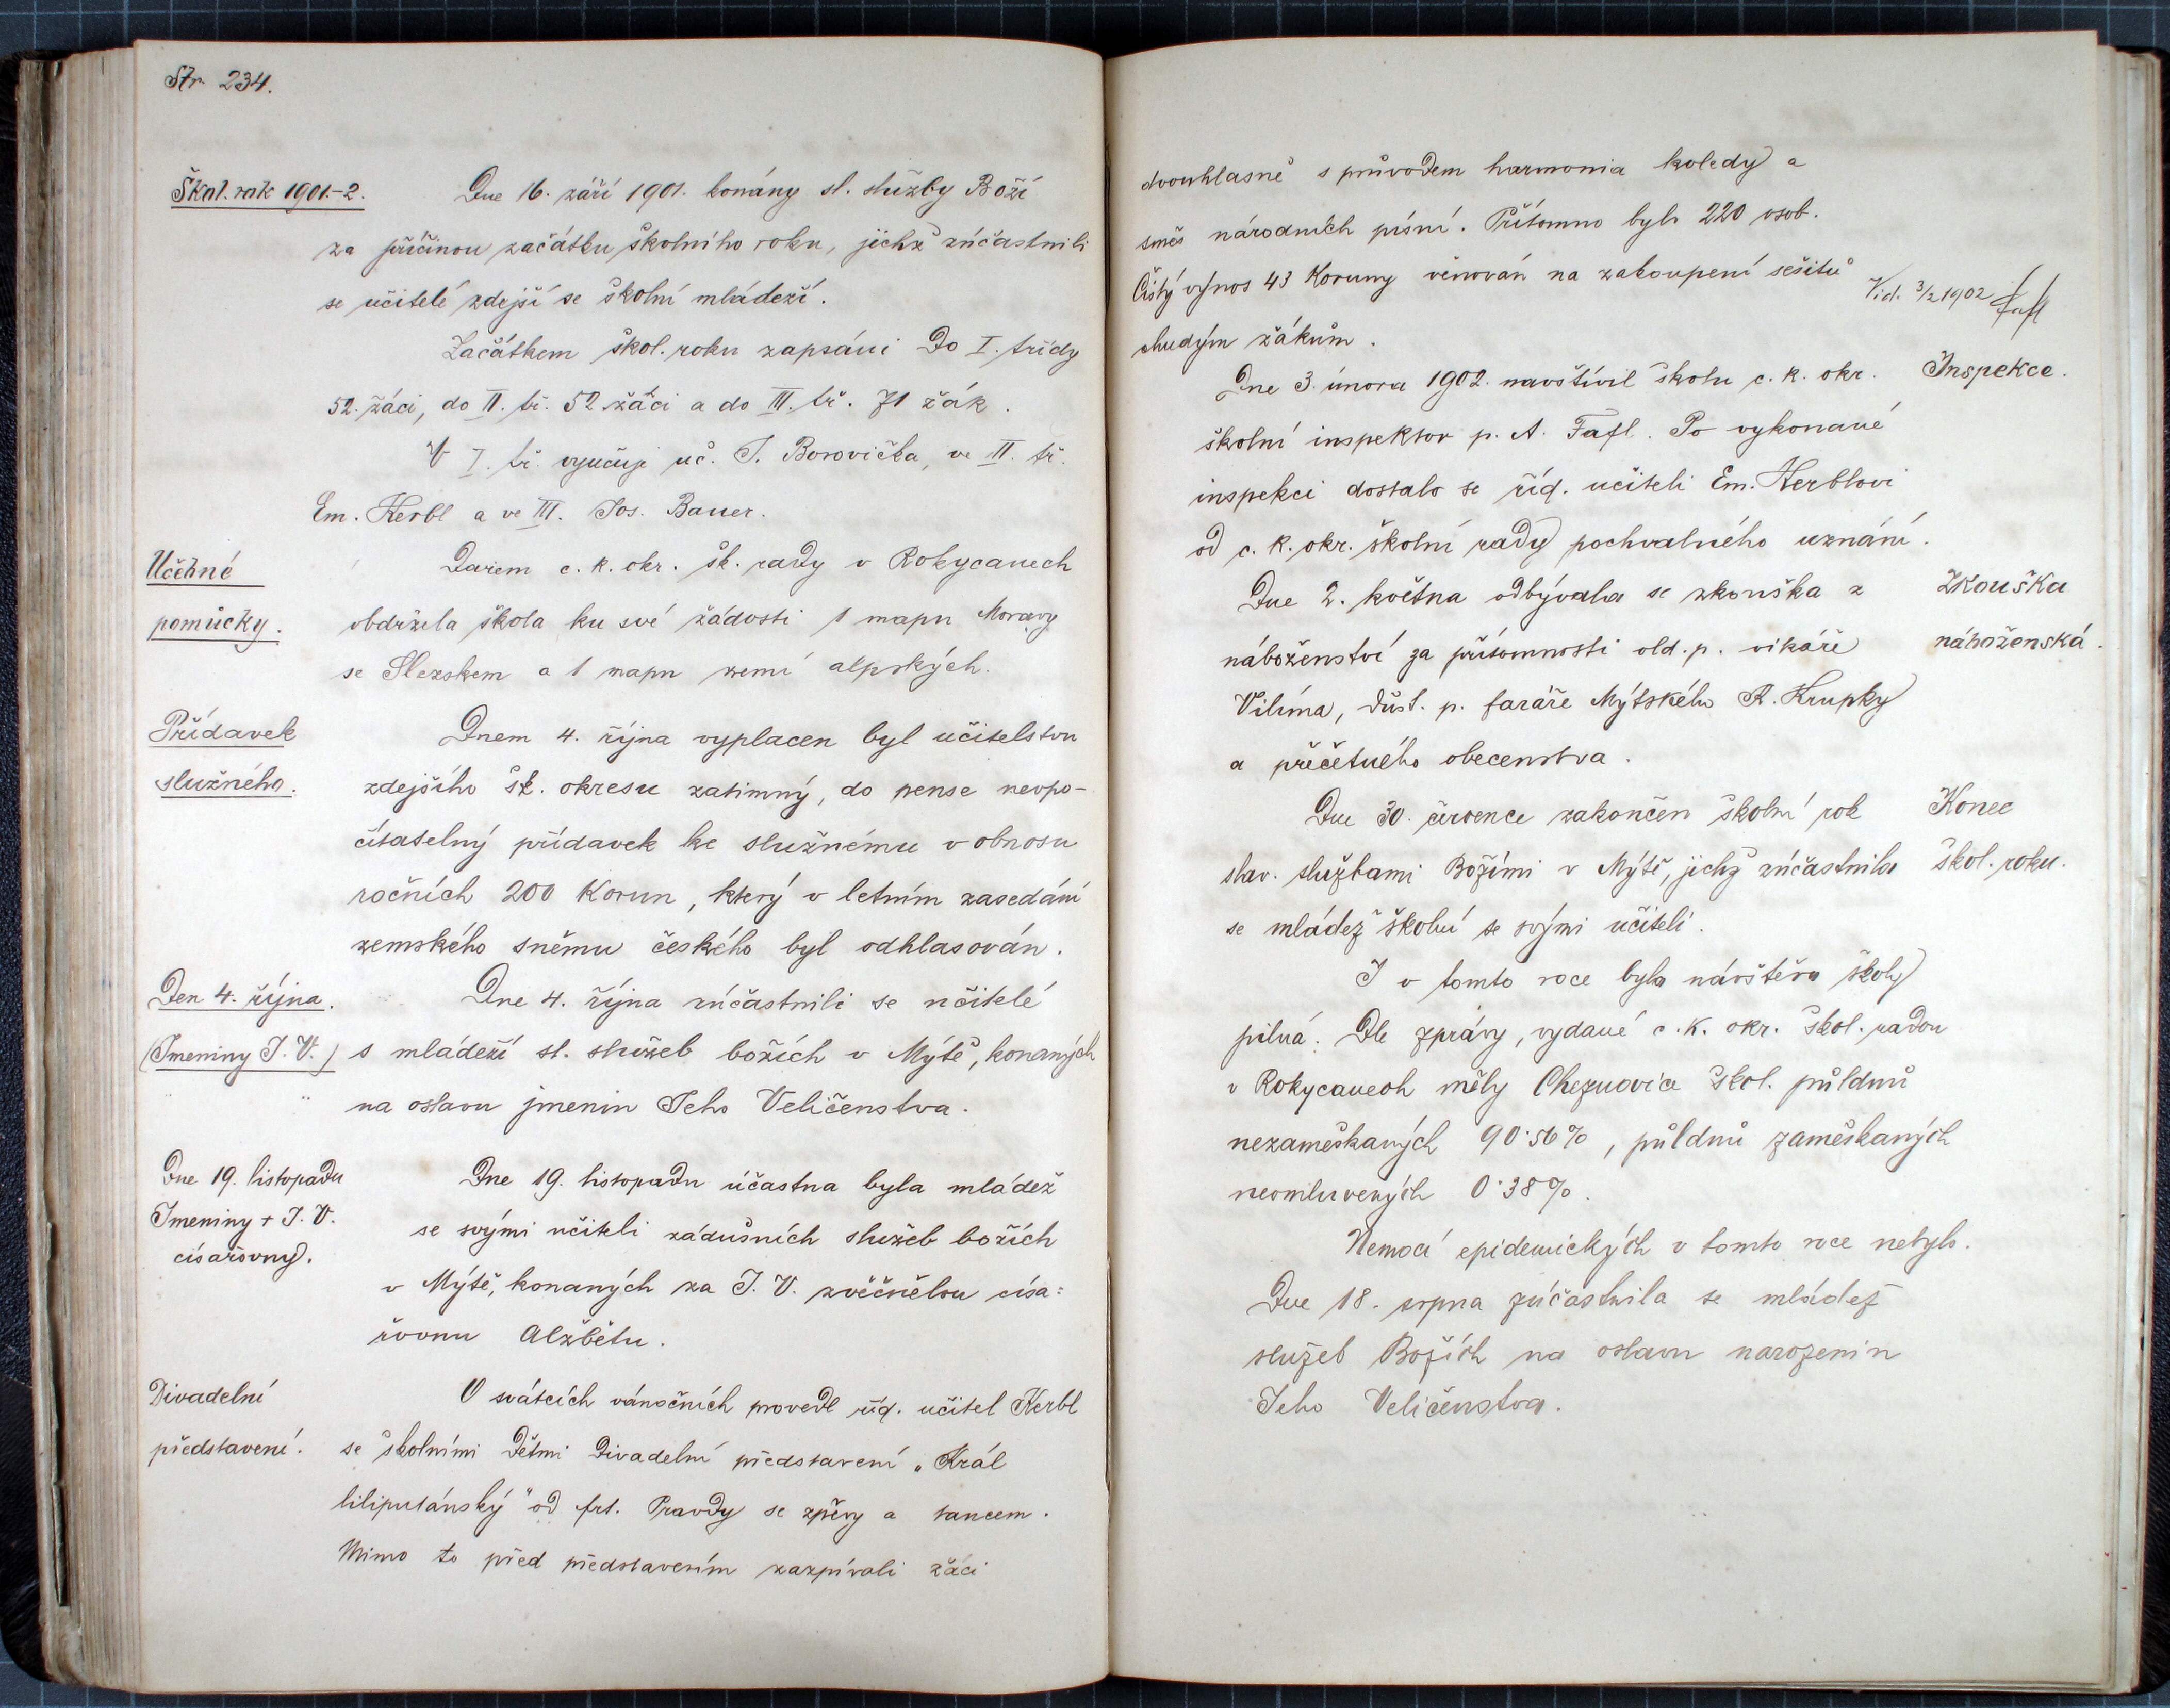 Str. 234.
Škol. rok 1901.-2.
Dne 16. září 1901. konány sl. služby Boží
za příčinou začátku školního roku, jichž zúčastnili
se učitelé zdejší se školní mládeží.
Začátkem škol. roku zapsáni do I. třídy
52. žáci, do II. tř. 52 žáci a do III. tř. 71 žák.
V I. tř. vyučuje uč. J. Borovička, ve II. tř.
Em. Kerbl a ve III. Jos. Bauer.
Učebné
pomůcky.
Darem c. k. okr. šk. rady v Rokycanech
obdržela škola ku své žádosti 1 mapu Moravy
se Slezskem a 1 mapu zemí alpských.
Přídavek
služného.
Dnem 4. října vyplacen byl učitelstvu
zdejšího šk. okresu zatimný, do pense nevpo-
čítatelný přídavek ke služnému v obnosu
ročních 200 Korun, který v letním zasedání
zemského sněmu českého byl odhlasován.
Den 4. října.
(Jmeniny J. V.)
Dne 4. října zúčastnili se učitelé
s mládeží sl. služeb božích v Mýtě, konaných
na oslavu jmenin Jeho Veličenstva.
Dne 19. listopadu
Jmeniny + J. V.
císařovny.
Dne 19. listopadu účastna byla mládež
se svými učiteli zádušních služeb božích
v Mýtě, konaných za J. V. zvěčnělou císa=
řovnu Alžbětu.
Divadelní
představení.
O svátcích vánočních provedl říd. učitel Kerbl
se školními dětmi divadelní představení „Král
liliputánský" od frt. Pravdy se zpěvy a tancem.
Mimo to před představením zazpívali žáci
dvouhlasně s průvodem harmonia koledy a
směs národních písní. Přítomno bylo 220 osob.
Čistý výnos 43 Koruny věnován na zakoupení sešitů
chudým žákům.
Vid. 3/2 1902 Tafl
Dne 3. února 1902. navštívil školu c. k. okr.
školní inspektor p. A. Tafl. Po vykonané
inspekci dostalo se říd. učiteli Em. Kerblovi
od c. k. okr. školní rady pochvalného uznání.
Inspekce.
Dne 2. května odbývala se zkouška z
náboženství za přítomnosti vld. p. vikáře
Vilíma, důst. p. faráře Mýtského R. Krupky
a přečetného obecenstva.
Zkouška
náboženská.
Dne 30. července zakončen školní rok
slav. službami Božími v Mýtě, jichž zúčastnila
se mládež školní se svými učiteli.
Konec
škol. roku.
I v tomto roce byla návštěva školy
pilná. Dle zprávy, vydané c. k. okr. škol. radou
v Rokycanech měly Cheznovice škol. půldnů
nezameškaných 90·56%, půldnů zameškaných
neomluvených 0·38%.
Nemocí epidemických v tomto roce nebylo.
Dne 18. srpna zúčastnila se mládež
služeb Božích na oslavu narozenin
Jeho Veličenstva.